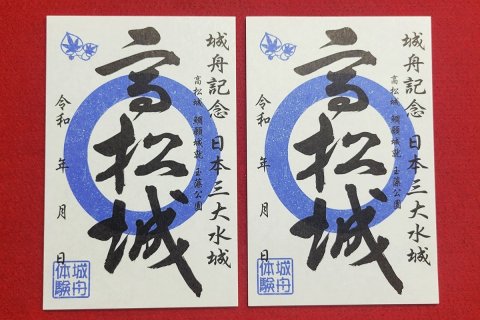 城舟記念 日本三大水城
高松城 鯛願城就 玉藻公園
高松城
令和 年 月 日
城舟
体験
城舟記念 日本三大水城
高松城 鯛願城就 玉藻公園
高松城
令和 年 月 日
城舟
体験